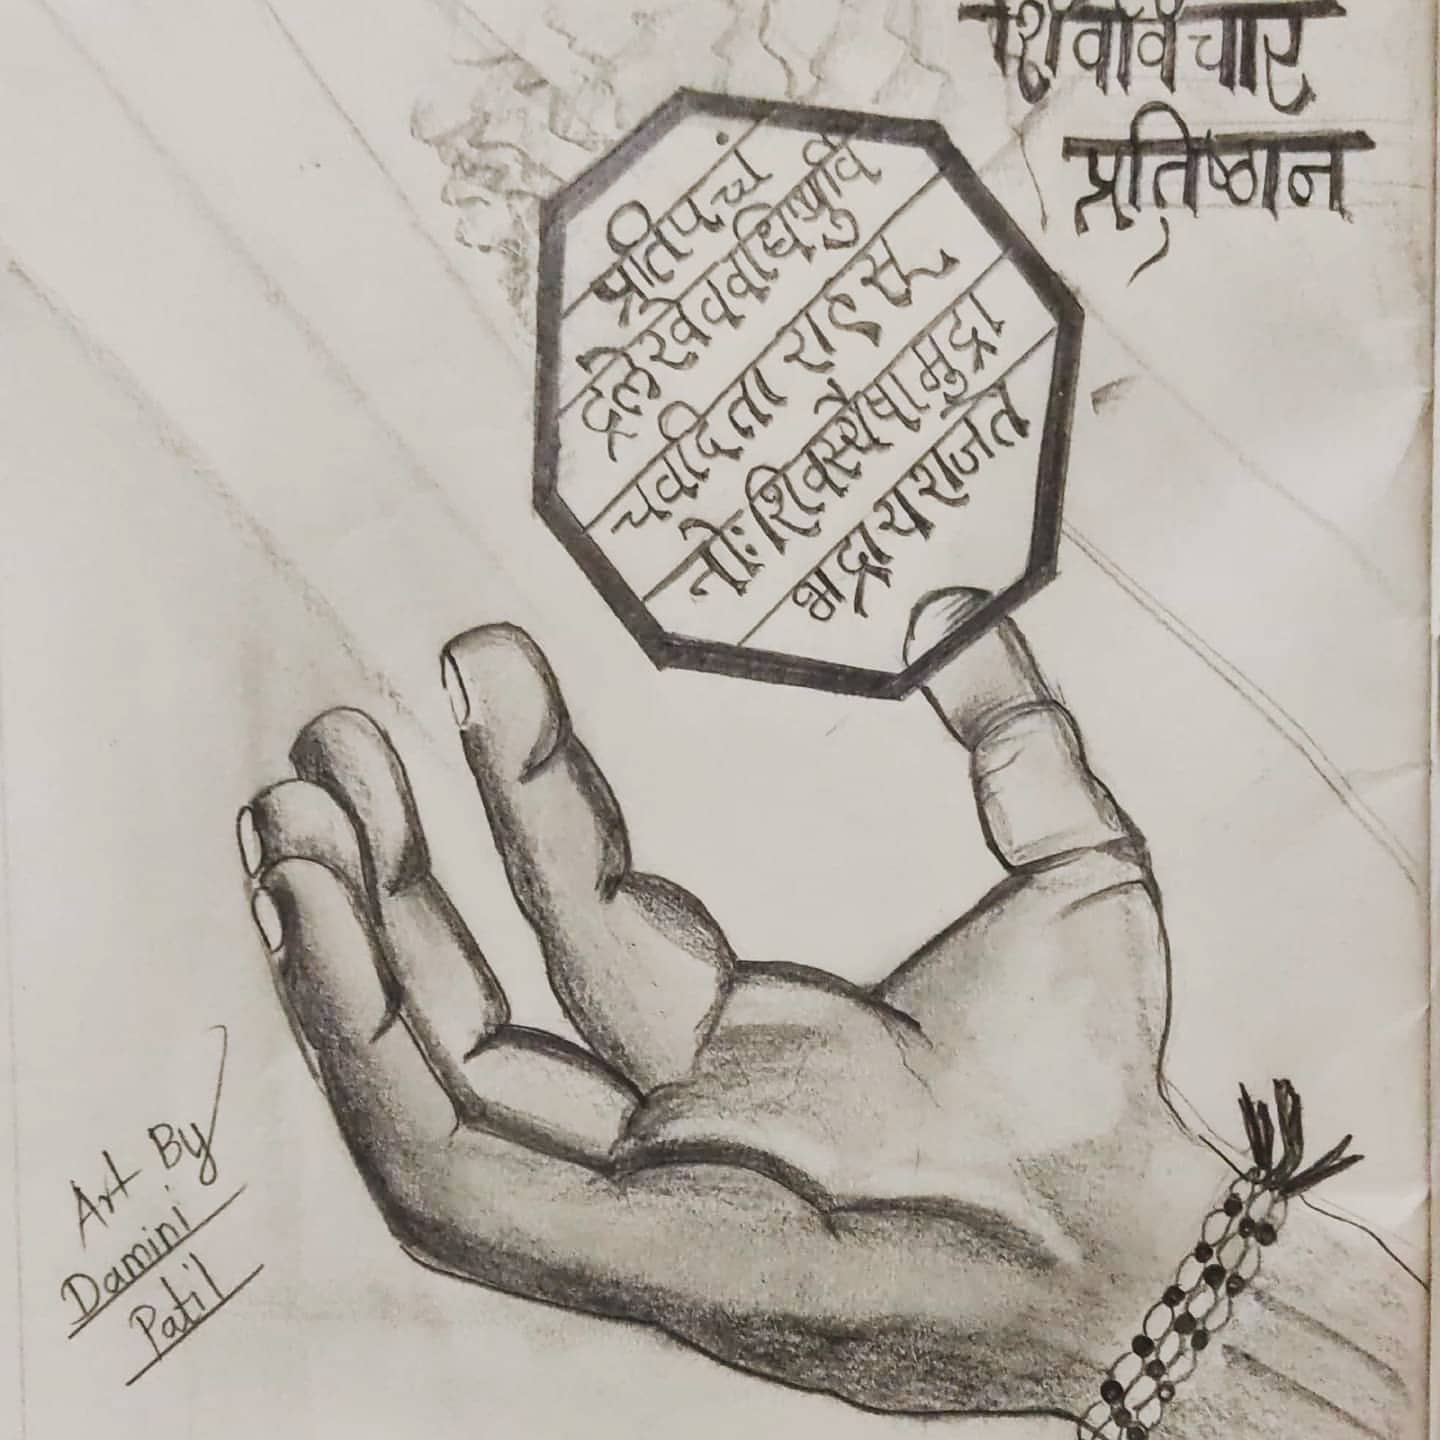 शिवविचार
प्रतिष्ठान
प्रतिपच्चं
द्रलेखेववर्धिष्णुर्वि
श्ववंदिता शाहसू
नोः शिवस्यैषा मुद्रा
भद्राय राजते
Art By
Damini
Patil